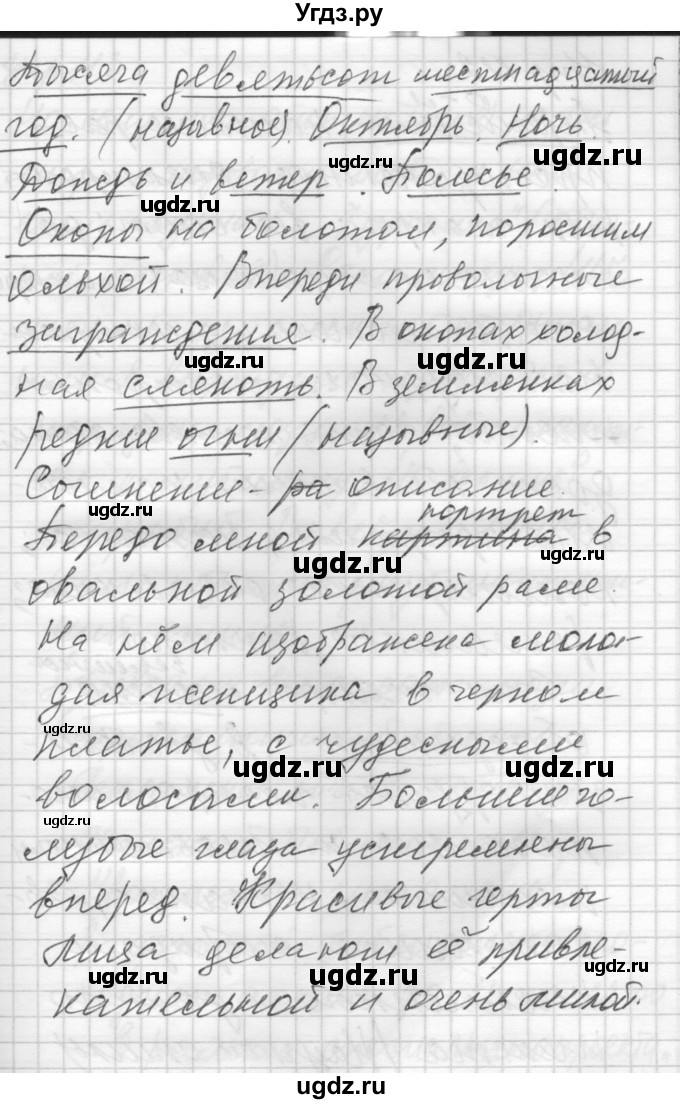 Угдз.ру
Тысяча девятьсот шестнадцатый
год. (назывное). Октябрь. Ночь.
Дождь и ветер. Полесье.
Окопы на болотом, поросшим
ольхой. Впереди проволочные
заграждения. В окопах холод-
ная слякоть. В землянках
редкие огни (назывные).
Сочинение - ра описание.
портрет
Передо мной картина в
овальной золотой раме.
На нём изображена моло-
дая женщина в черном
платье, с чудесными
волосами. Большие го-
лубые глаза устремлены
вперед. Красивые черты
лица делают её привле-
кательной и очень милой.
ugdz.ru